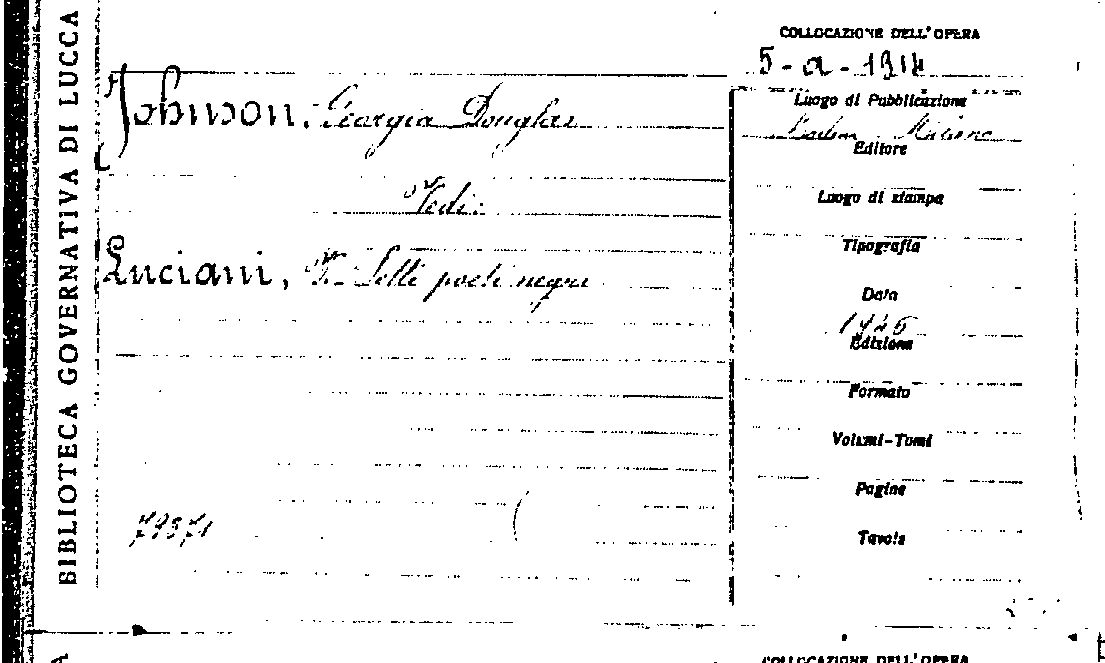 BIBLIOTECA GOVERNATIVA DI LUCCA
COLLOCAZIONE DELL'OPERA
5-a-1914
Johnson, Georgia Douglas
Vedi:
Luciani, V. Sette poeti negri
Luogo di Pubblicazione
Milano
Editore
Luogo di stampa
Tipografia
Data
Edizione
Formato
Volumi-Tomi
Pagine
Tavole
COLLOCAZIONE DELL'OPERA